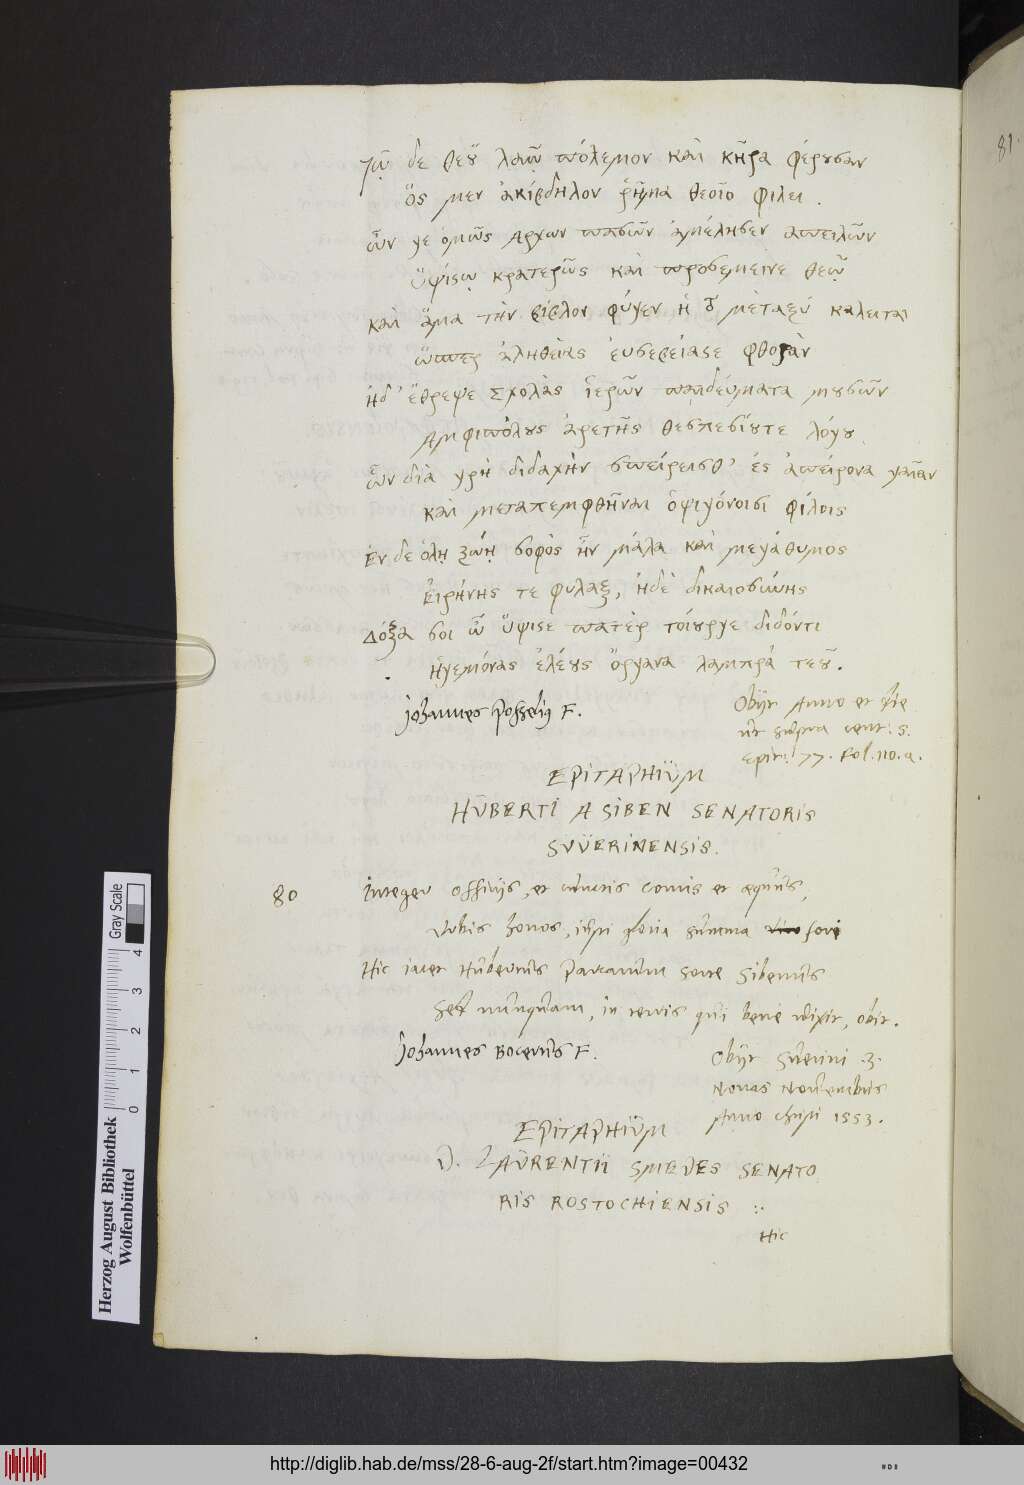 τῷ δε θεοῦ λαῷ πόλεμον καὶ κῆρα φέρουσαν
ὅς μεν ἀκίβδηλον ῥῆμα θεοῖο φιλει.
ὧν γε ὁμῶς Αρχων πασῶν ἀμέλησεν απειλῶν
ὕψίςῳ κρατερῶς καὶ προσεμεινε θεῷ
καὶ ἅμα τὴν βίβλον φύγεν ἡ οῦ μέταξύ καλειται
ὥσπερ ἀληθείας ἐυσεβείαςε φθορὰν
ἠδ' ἔθρεψε Σχολὰς ἱερῶν παιδεύματα μουσῶν
Αμφιπόλους ἀρετῆς θεσπεσίουτε λόγου
ὧν διὰ χρὴ διδαχὴν σπείρεισθ' ἐς ἀπείρονα γαῖαν
καὶ μεταπεμφθῆναι ὀψιγόνοισι φίλοις
Εν δε ὁλῃ ζώῃ σοφὸς ἦν μάλα καὶ μεγάθυμος
Ειρήνης τε φυλαξ, ἠδὲ δικαιοσύνης
Δόξα σοι ὦ ὕψιςε πατὲρ τοίουςγε διδόντι
Ἡγεμόνας ἐλέους ὄργανα λαμπρά τεοῦ.
Johannes Posselius F.
Obijt Anno et die
ut supra cent: 5.
epit: 77. fol. 110. a.
EPITAPHIUM
HUBERTI A SIBEN SENATORIS
SVVERINENSIS.
80 Integer officijs, et cunctis comis et aequus,
Urbis honos, ipsi gloria summa fori
Hic iacet Hubertus Parcarum sorte Sibenus
Sed nunquam, in terris qui bene vixit, obit.
Johannes Bocerus F.
Obijt Suerini .3.
Nonas Novembris
Anno Christi 1553.
EPITAPHIUM
D. LAURENTII SMEDES SENATO
RIS ROSTOCHIENSIS :.
Hic
81.
Herzog August Bibliothek
Wolfenbüttel
Gray Scale
0 1 2 3 4
http://diglib.hab.de/mss/28-6-aug-2f/start.htm?image=00432